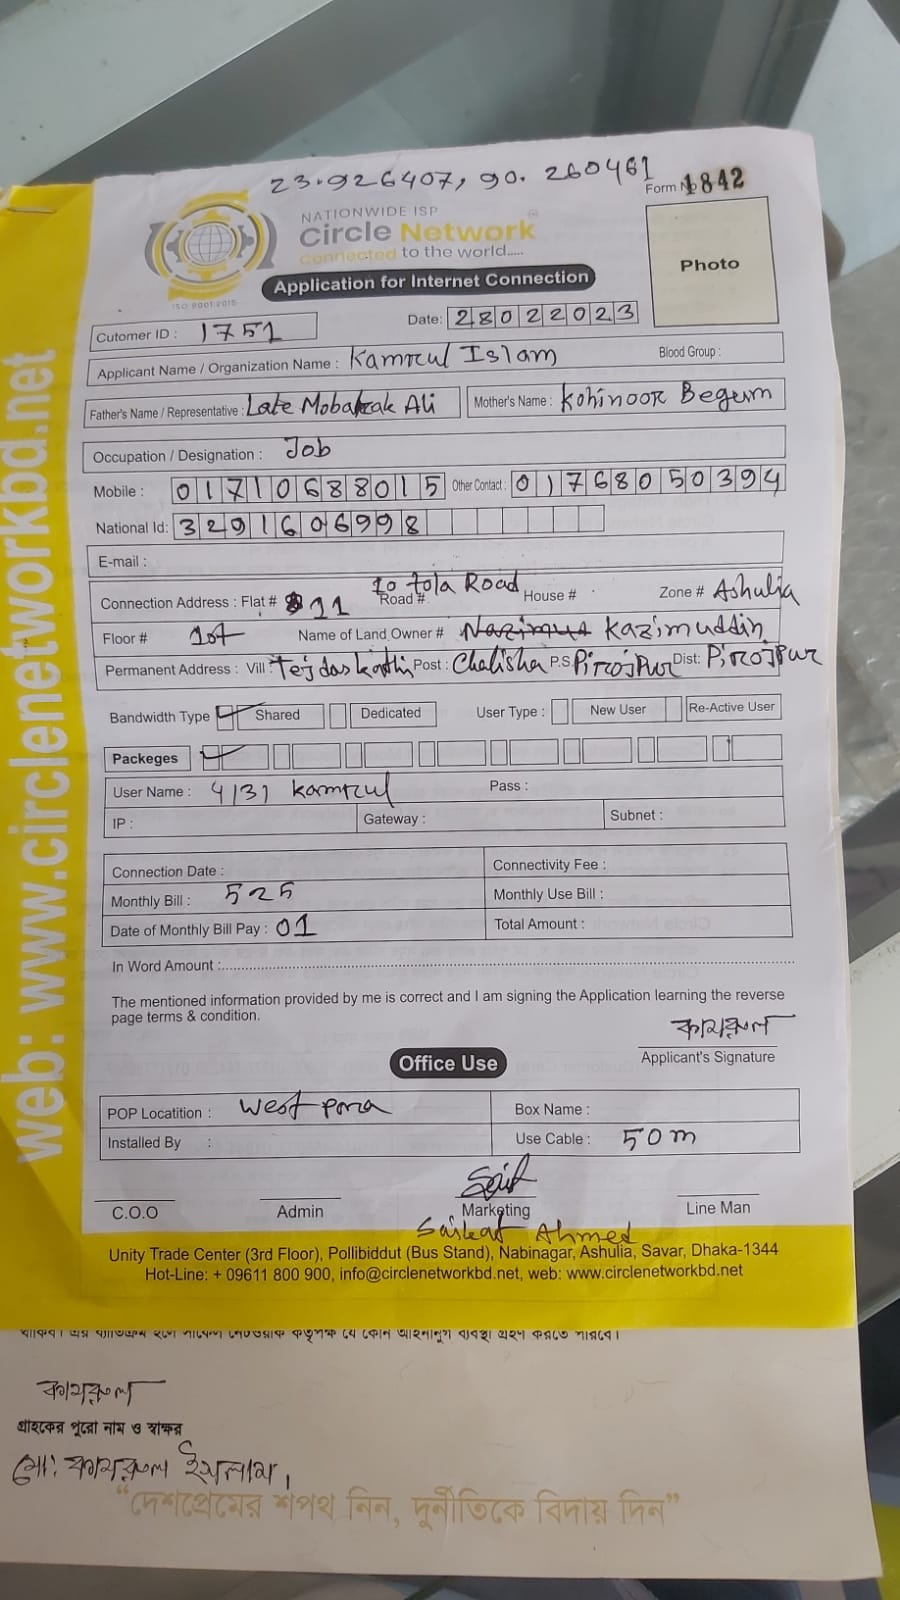 23.926407, 90.260461
Form No 1842
NATIONWIDE ISP
Circle Network
Connected to the world.....
ISO 9001:2015
Application for Internet Connection
Photo
Cutomer ID : 1751
Date: 28022023
Applicant Name / Organization Name : Kamrul Islam
Blood Group :
Father's Name / Representative : Late Mobarak Ali
Mother's Name : Kohinoor Begum
Occupation / Designation : Job
Mobile : 01710688015 Other Contact : 01768050394
National Id: 3291606998
E-mail :
Connection Address : Flat # 11 Road # 10 tola Road House # Zone # Ashulia
Floor # 1st Name of Land Owner # Kazimuddin
Permanent Address : Vill : Tejdaskathi Post : Chalisha P.S. Pirojpur Dist: Pirojpur
Bandwidth Type Shared Dedicated User Type : New User Re-Active User
Packeges
User Name : 4131 kamrul Pass :
IP : Gateway : Subnet :
Connection Date : Connectivity Fee :
Monthly Bill : 525 Monthly Use Bill :
Date of Monthly Bill Pay : 01 Total Amount :
In Word Amount :
The mentioned information provided by me is correct and I am signing the Application learning the reverse
page terms & condition.
কামরুল
Applicant's Signature
Office Use
POP Locatition : West para Box Name :
Installed By : Use Cable : 50m
C.O.O Admin Marketing Line Man
Saikat Ahmed
Unity Trade Center (3rd Floor), Pollibiddut (Bus Stand), Nabinagar, Ashulia, Savar, Dhaka-1344
Hot-Line: + 09611 800 900, info@circlenetworkbd.net, web: www.circlenetworkbd.net
web: www.circlenetworkbd.net
কামরুল
গ্রাহকের পুরো নাম ও স্বাক্ষর
মো: কামরুল ইসলাম।
“দেশপ্রেমের শপথ নিন, দুর্নীতিকে বিদায় দিন”